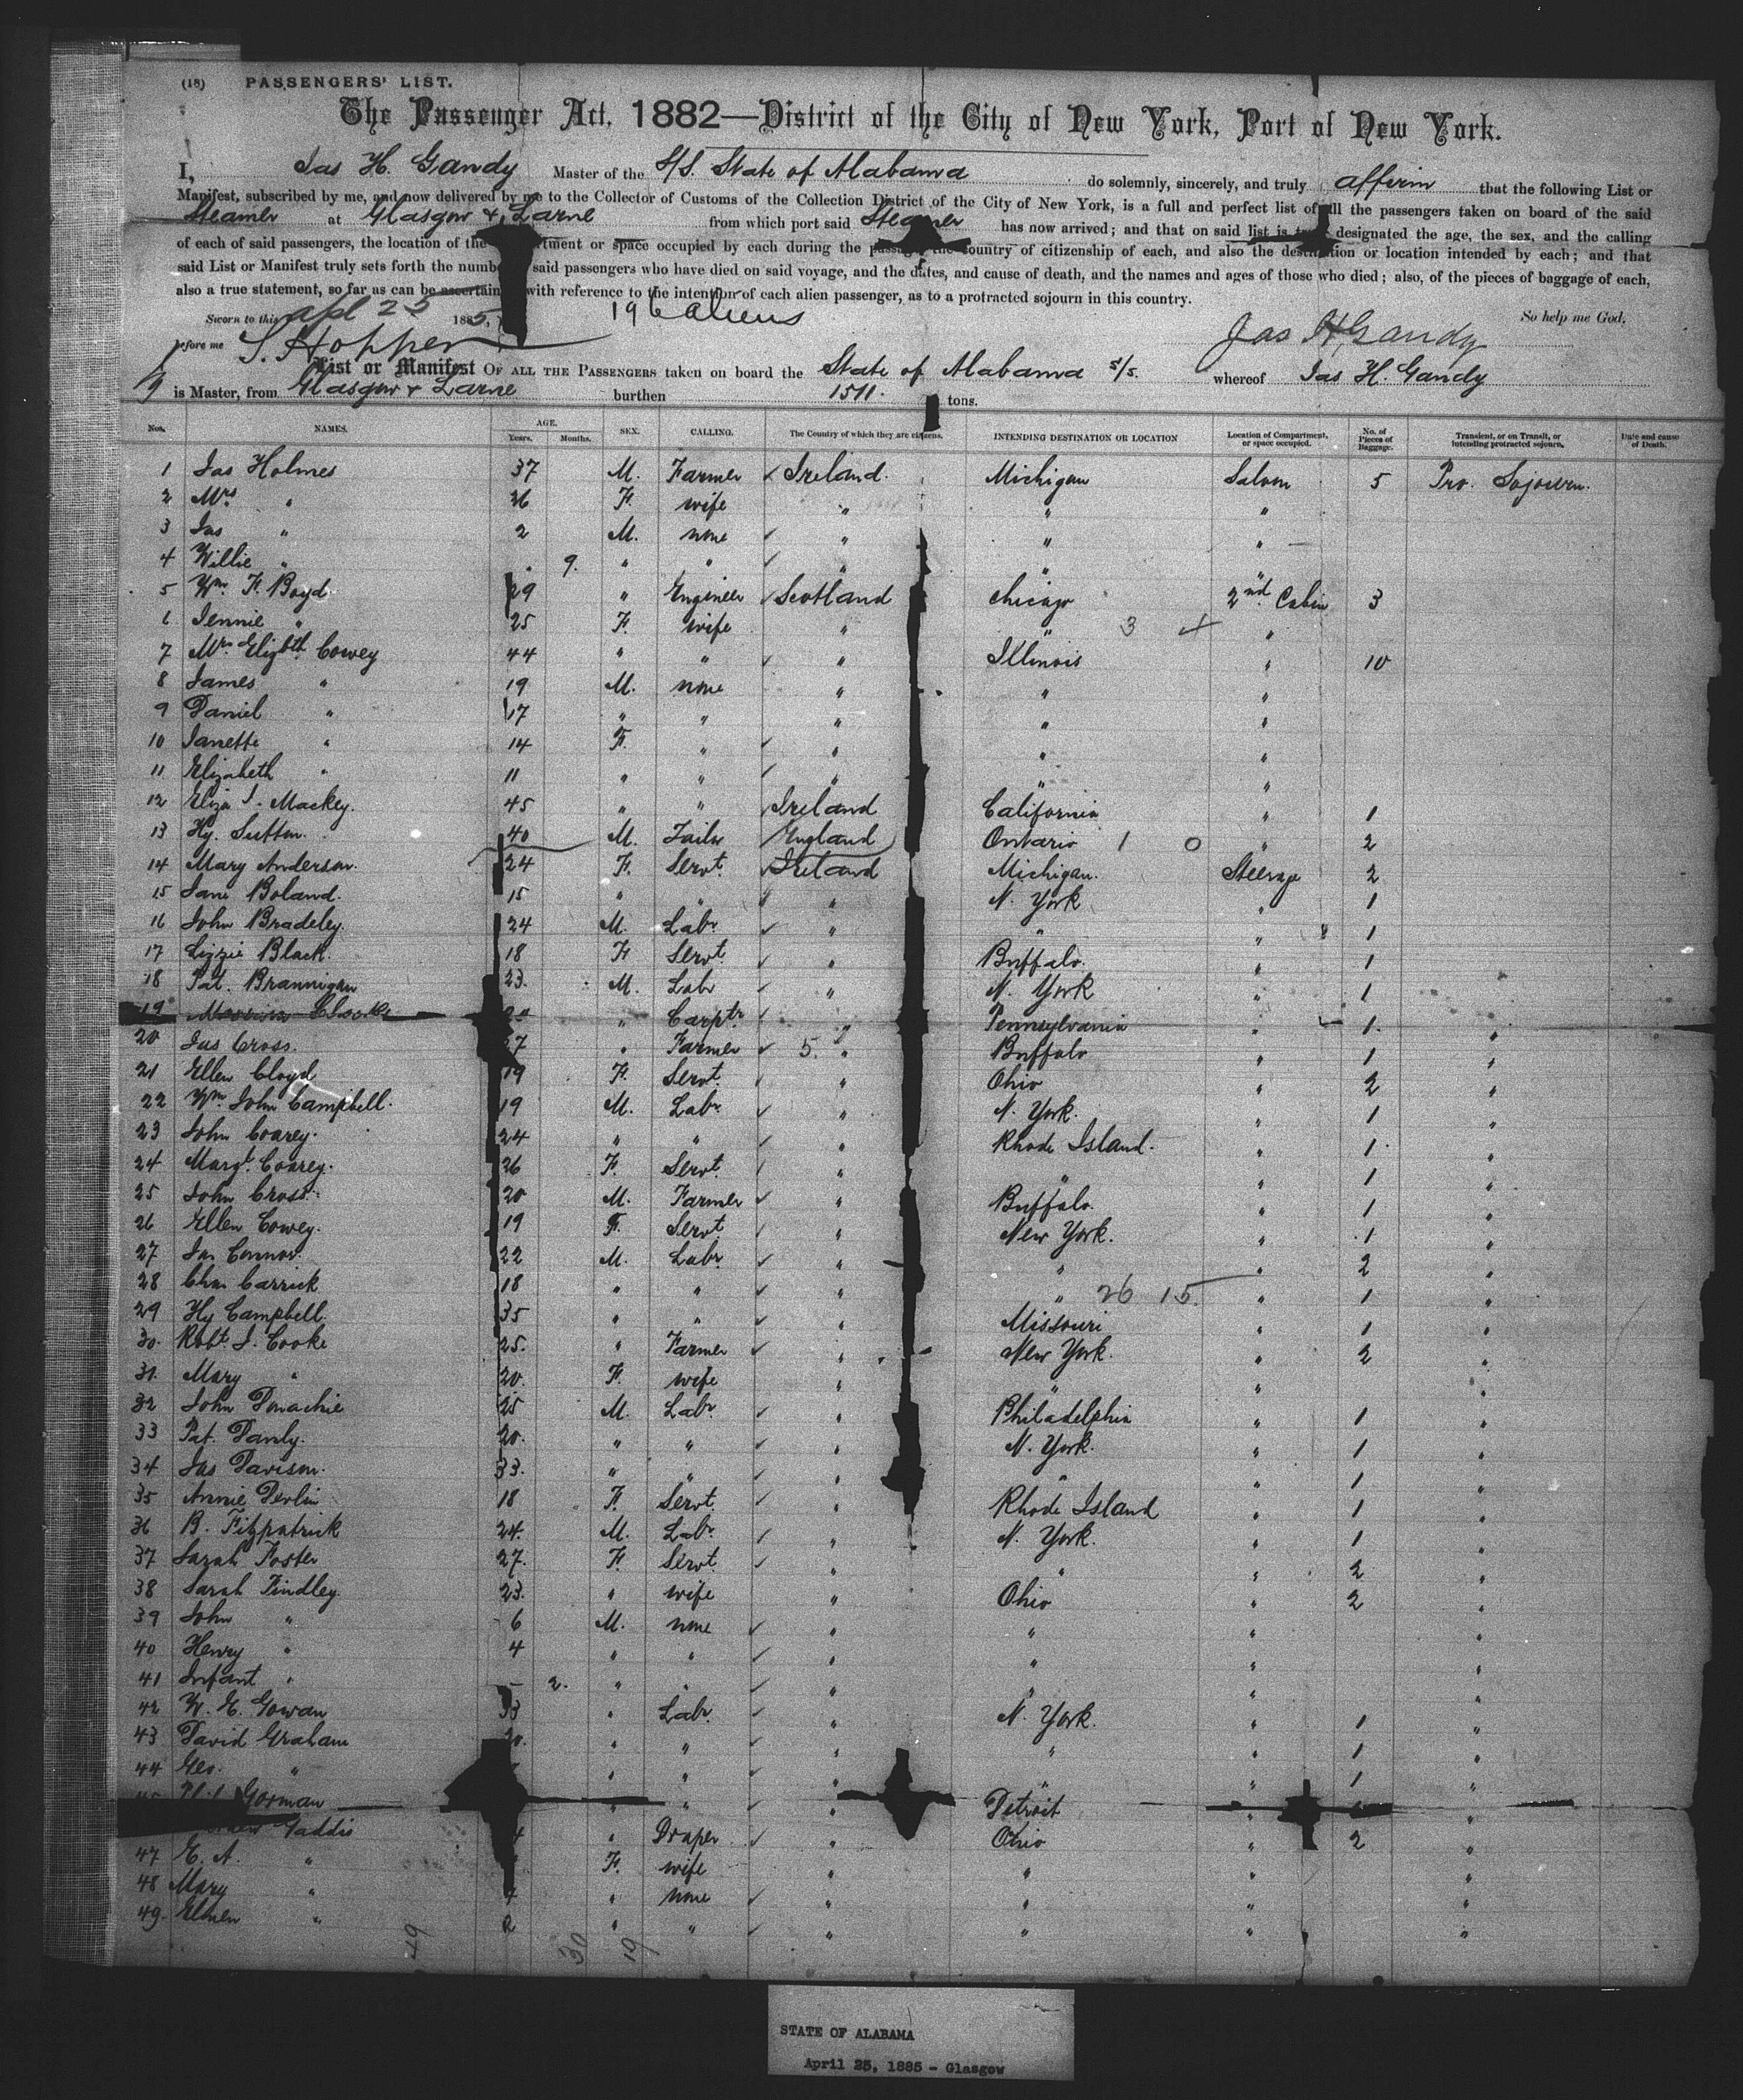 (18) PASSENGERS' LIST.
The Passenger Act, 1882—District of the City of New York, Port of New York.
I, Jas H. Gandy Master of the S/S. State of Alabama do solemnly, sincerely, and truly affirm that the following List or
Manifest, subscribed by me, and now delivered by me to the Collector of Customs of the Collection District of the City of New York, is a full and perfect list of all the passengers taken on board of the said
Steamer at Glasgow & Larne from which port said Steamer has now arrived; and that on said list is designated the age, the sex, and the calling
of each of said passengers, the location of the or space occupied by each during the passage the country of citizenship of each, and also the destination or location intended by each; and that
said List or Manifest truly sets forth the number said passengers who have died on said voyage, and the dates, and cause of death, and the names and ages of those who died; also, of the pieces of baggage of each,
also a true statement, so far as can be ascertain with reference to the intention of each alien passenger, as to a protracted sojourn in this country.
Sworn to this Apl 25 1885, 196 aliens So help me God.
before me S. Hopper Jas H Gandy
List or Manifest OF ALL THE PASSENGERS taken on board the State of Alabama S/S. whereof Jas H. Gandy
is Master, from Glasgow & Larne burthen 1511. tons.
Nos. NAMES. AGE. Years. Months. SEX. CALLING. The Country of which they are citizens. INTENDING DESTINATION OR LOCATION Location of Compartment, or space occupied. No. of Pieces of Baggage. Transient, or on Transit, or intending protracted sojourn. Date and cause of Death.
1 Jas Holmes 37 M. Farmer Ireland. Michigan Saloon 5 Pro. Sojourn.
2 Mrs " 36 F. wife " " "
3 Jas " 2 M. none " " "
4 Willie " 9. " " " " "
5 Wm. F. Boyd 29 " Engineer Scotland Chicago 2nd Cabin 3
6 Jennie " 25 F. wife " " 3 "
7 Mrs. Elizbth Cowey 44 " " " Illinois " 10
8 James " 19 M. none " " "
9 Daniel " 17 " " " " "
10 Janette " 14 F. " " " "
11 Elizabeth " 11 " " " " "
12 Eliza J. Mackey. 45 " " Ireland California " 1
13 Hy. Sutton. 40 M. Tailor England Ontario 1 0 " 2
14 Mary Anderson. 24 F. Servt. Ireland Michigan. Steerage 2
15 Jane Boland. 15 " " " N. York " 1
16 John Bradeley. 24 M. Labr. " " " 1
17 Lizzie Black. 18 F Servt. " Buffalo. " 1
18 Pat. Brannigan 23. M. Labr " N. York " 1
19 " Carptr " Pennsylvania " 1. "
20 Jas Cross. 7 " Farmer 5. " Buffalo " 1 "
21 Ellen Cloyd 19 F. Servt. " Ohio " 2 "
22 Wm. John Campbell. 19 M. Labr. " N. York. " 1 "
23 John Coarey. 24 " " " Rhode Island. " 1. "
24 Margt. Coarey. 26 F. Servt. " " " 1 "
25 John Cross. 20 M. Farmer " Buffalo. " 1 "
26 Ellen Cowey. 19 F. Servt. " New York. " 1 "
27 Jas Connor. 22 M. Labr. " " " 2 "
28 Chas Carrick 18 " " " " 26 15. " 1 "
29 Hy Campbell. 35 " " " Missouri " 1 "
30. Robt. J. Cooke 25. " Farmer " New York. " 2 "
31. Mary " 20. F. wife " " " "
32 John Donachie 25 M. Labr. " Philadelphia " 1 "
33 Pat. Danly. 20. " " " N. York. " 1 "
34 Jas Davison. 33. " " " " " 1 "
35 Annie Devlin 18 F. Servt. " Rhode Island " 1 "
36 B. Fitzpatrick 24. M. Labr. " N. York. " 1 "
37 Sarah Foster 27. F. Servt. " " " 2 "
38 Sarah Findley. 23. " wife " Ohio " 2 "
39 John " 6 M. none " " " "
40 Henry " 4 " " " " " "
41 Infant " 2. " " " " " "
42 W. G. Gowan 33 " Labr. " N. York. " 1 "
43 David Graham 20. " " " " " 1 "
44 Geo. " " " " " " 1 "
Gorman " " " Detroit " "
Gaddis " Draper " Ohio " 2 "
47 E. A. " F. wife " " " "
48 Mary " 7 " none " " " "
49. Elmen " 2 " " " " " "
49 30 19
STATE OF ALABAMA
April 25, 1885 - Glasgow